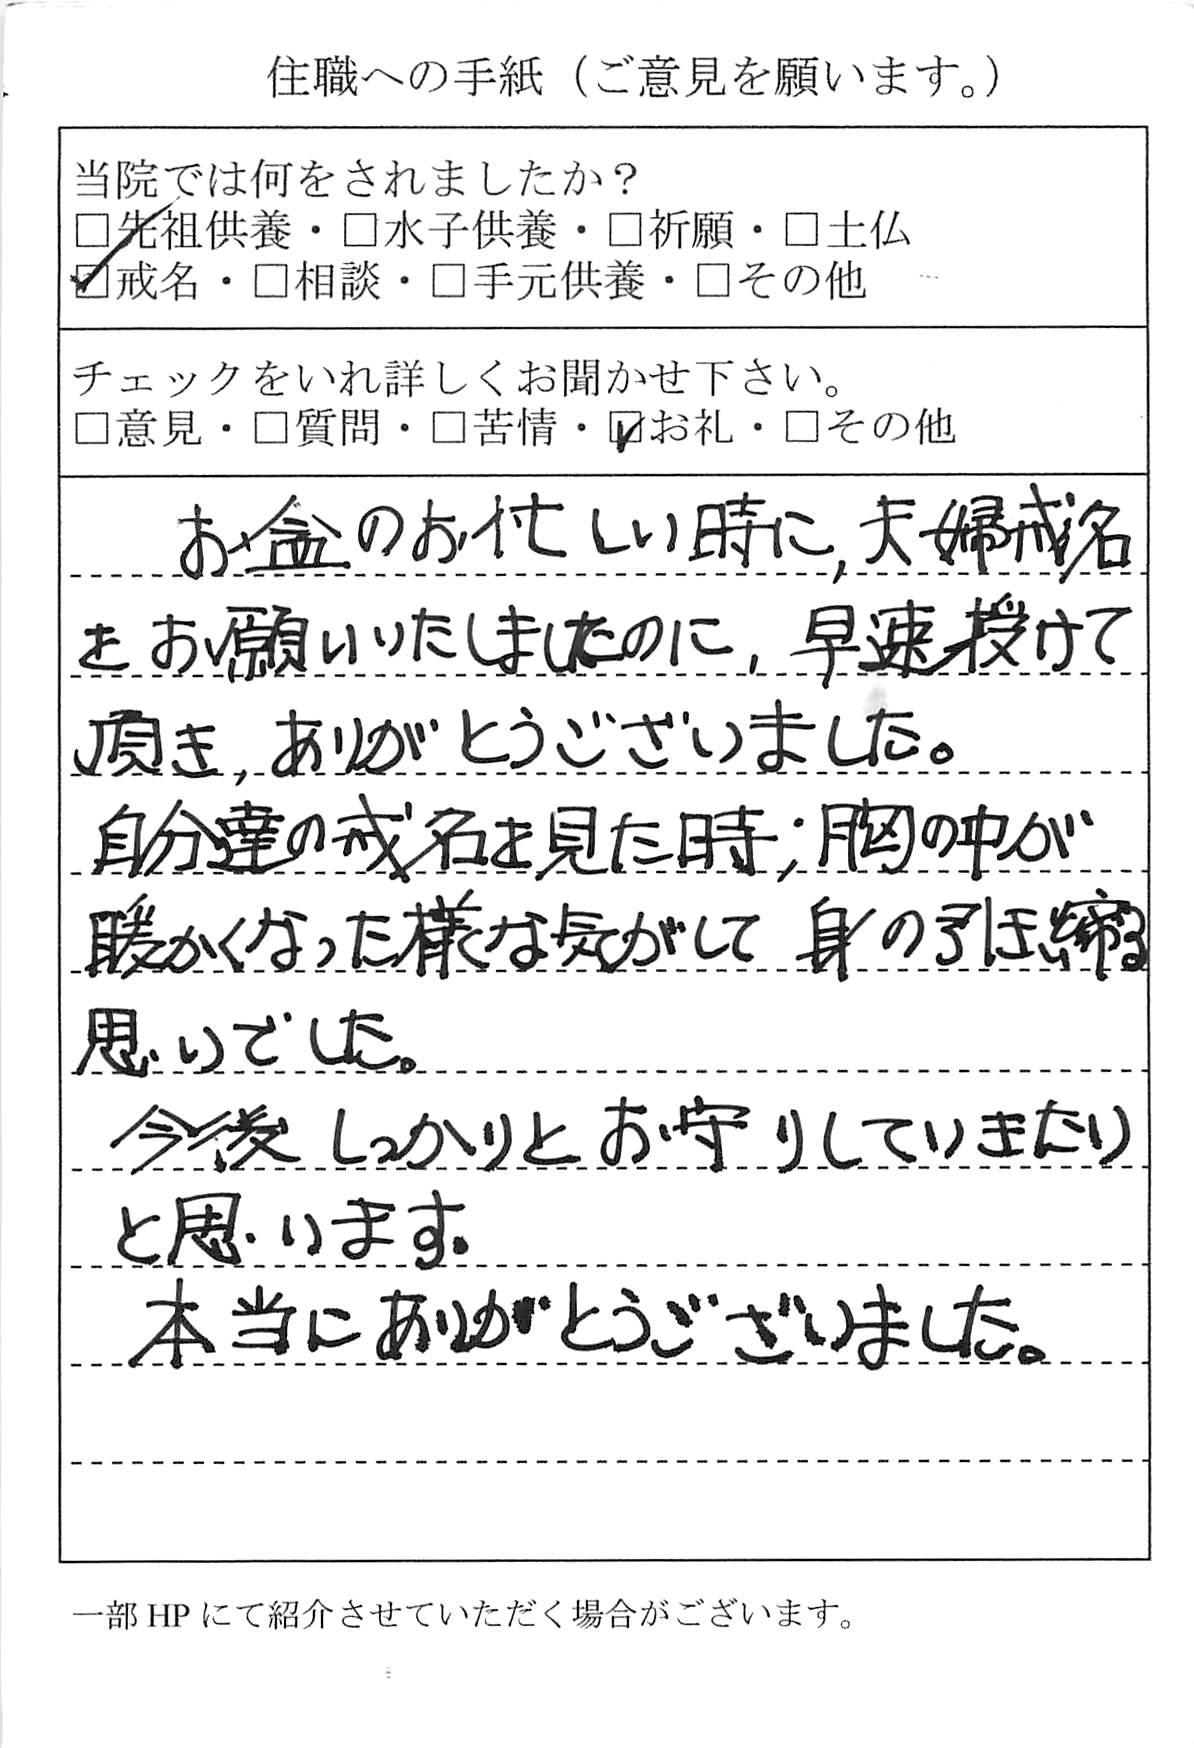 住職への手紙（ご意見を願います。）
当院では何をされましたか？
□先祖供養・□水子供養・□祈願・□土仏
☑戒名・□相談・□手元供養・□その他
チェックをいれ詳しくお聞かせ下さい。
□意見・□質問・□苦情・☑お礼・□その他
お盆のお忙しい時に，夫婦戒名
をお願いいたしましたのに，早速授けて
頂き，ありがとうございました。
自分達の戒名を見た時，胸の中が
暖かくなった様な気がして 身の引き締る
思いでした。
今後しっかりとお守りしていきたい
と思います。
本当にありがとうございました。
一部 HP にて紹介させていただく場合がございます。